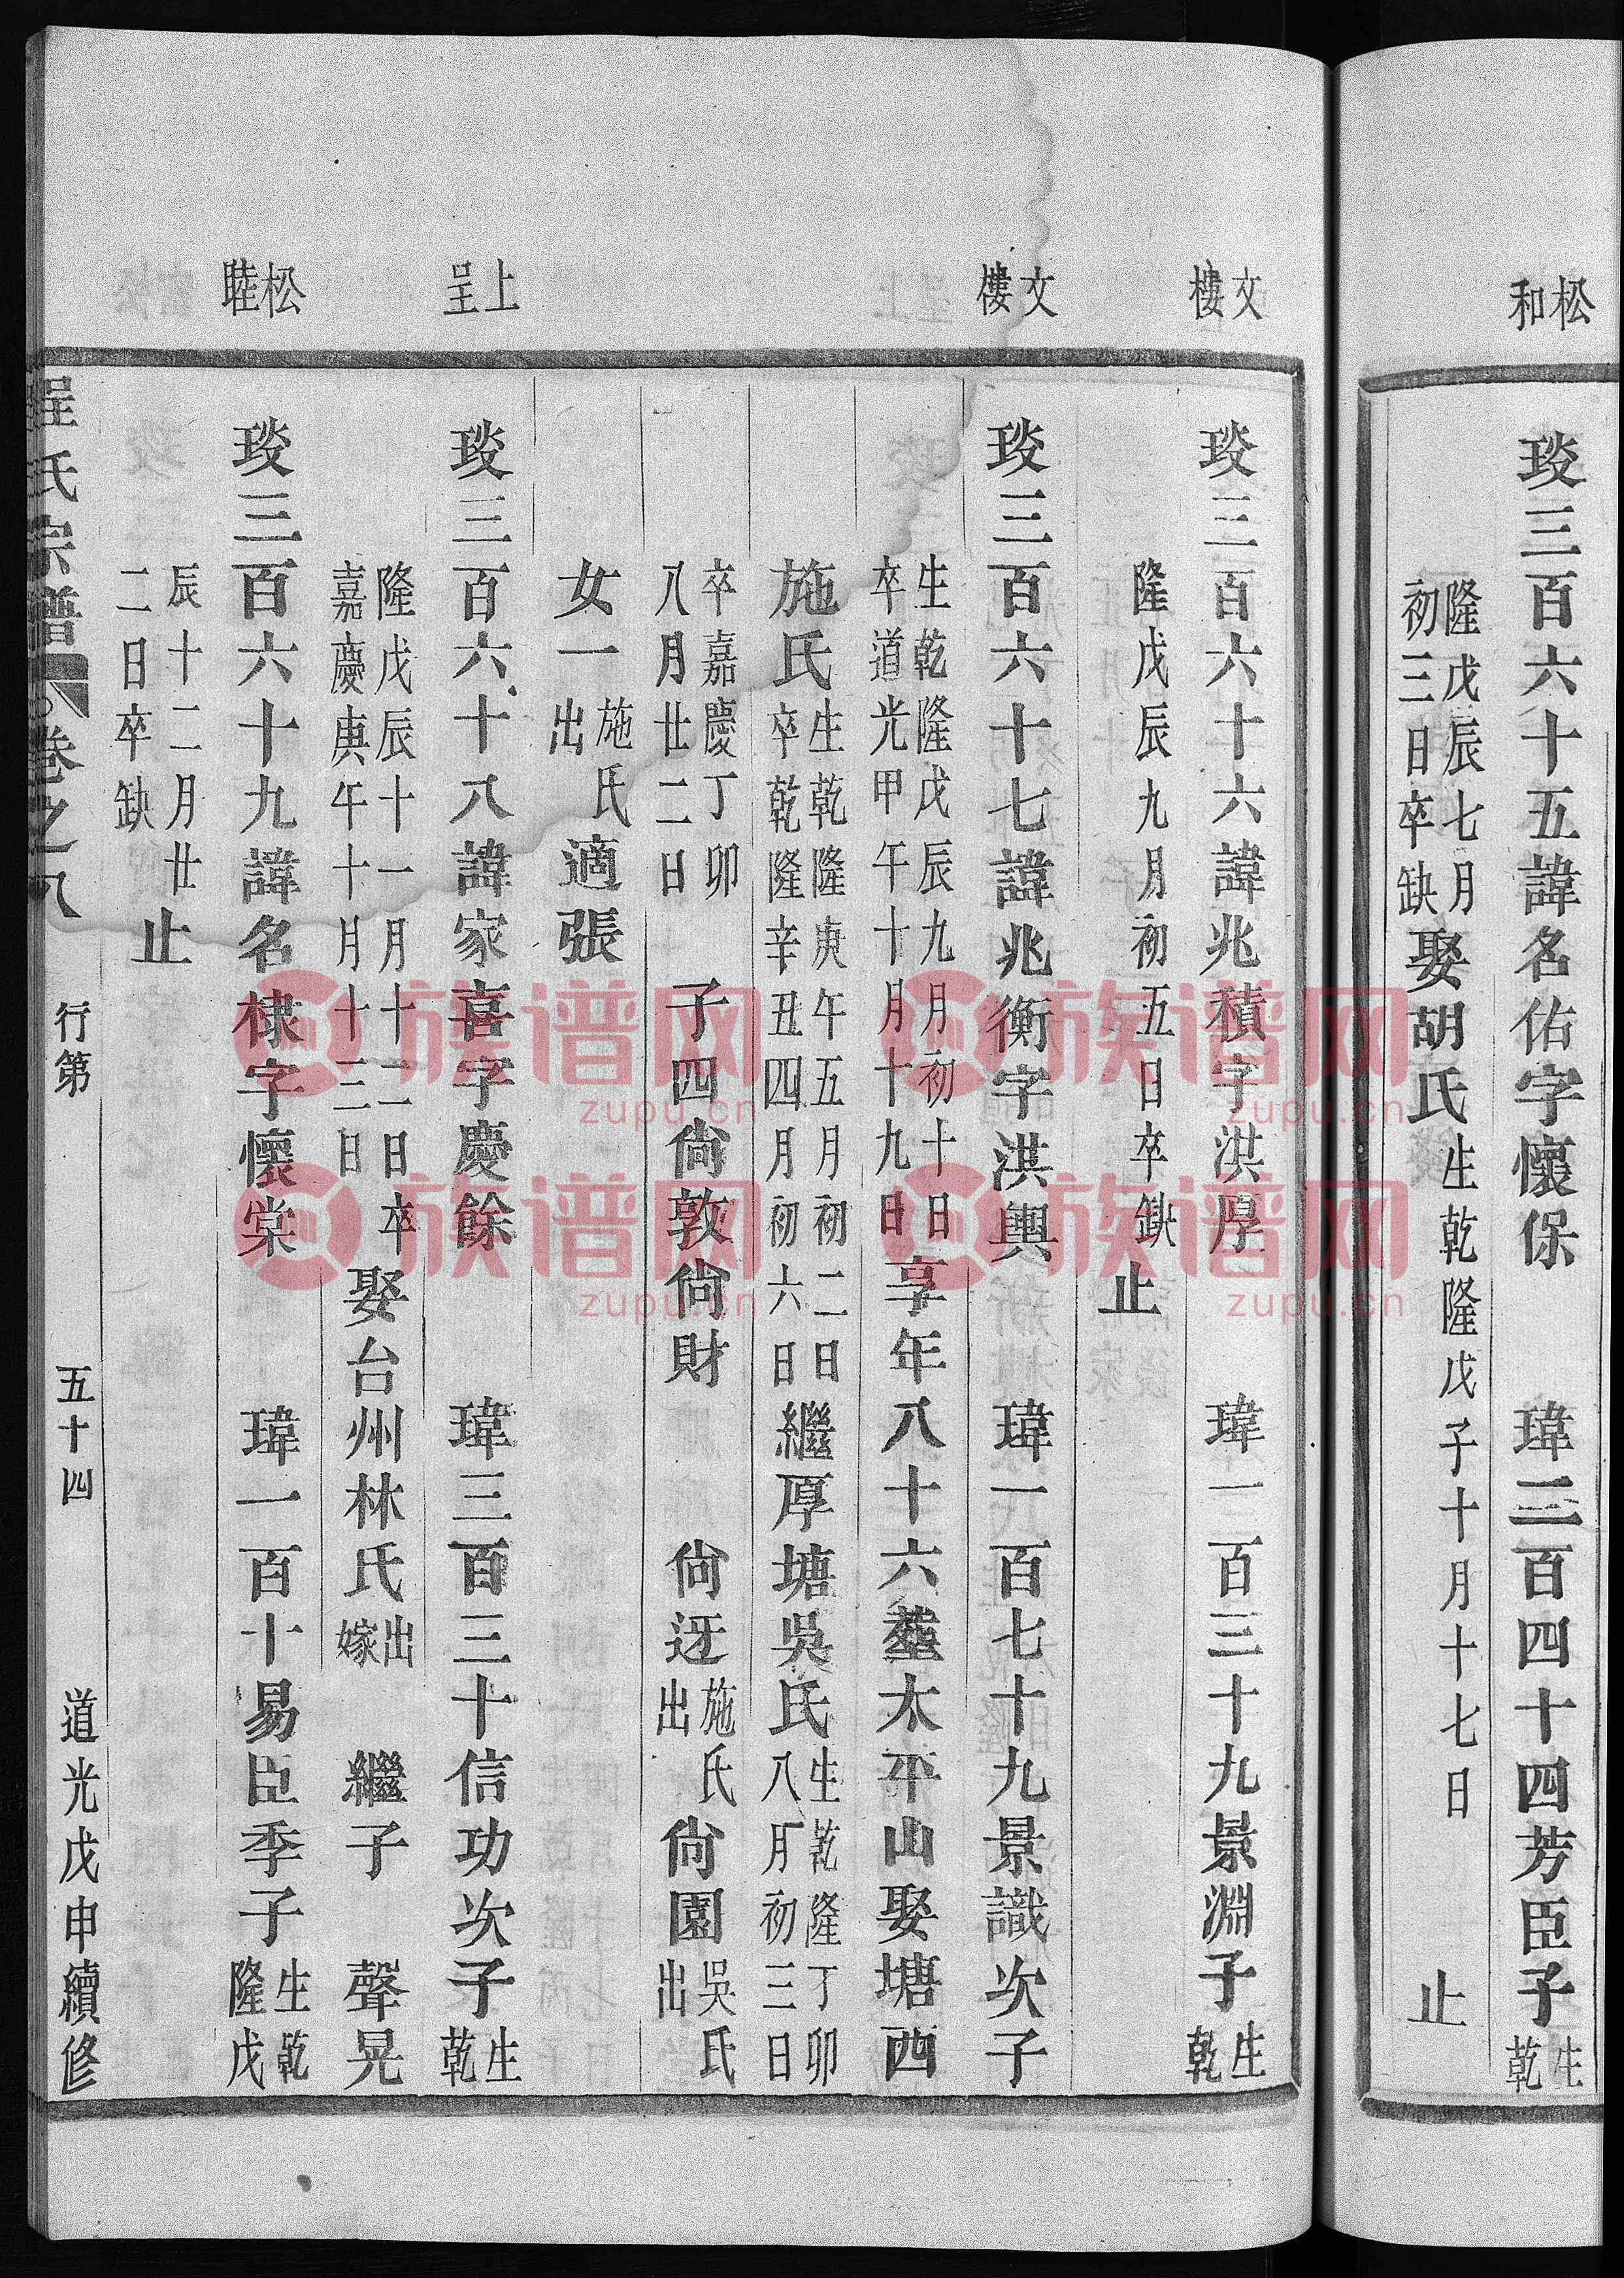 松和
琰三百六十五諱名佑字懷保 瑋二百四十四芳臣子生乾
隆戊辰七月初三日卒缺娶胡氏生乾隆戊子十月十七日 止
文樓
琰三百六十六諱兆積字洪厚 瑋一百三十九景淵子生乾
隆戊辰九月初五日卒缺 止
文樓
琰三百六十七諱兆衡字洪輿 瑋一百七十九景識次子
生乾隆戊辰九月初十日卒道光甲午十月十九日享年八十六塟太平山娶塘西
施氏生乾隆庚午五月初二日卒乾隆辛丑四月初六日繼厚塘吳氏生乾隆丁卯八月初三日
卒嘉慶丁卯八月廿二日 子四尙敦尙財 尙迓施氏出尙園吳氏出
女一施氏出適張
上呈
琰三百六十八諱家喜字慶餘 瑋三百三十信功次子生乾
隆戊辰十一月十二日卒嘉慶庚午十月十三日娶台州林氏出嫁 繼子 聲晃
松睦
琰三百六十九諱名棣字懷棠 瑋一百十易臣季子生乾隆戊
辰十二月廿二日卒缺 止
程氏宗譜 卷之八 行第 五十四 道光戊申續修
族谱网 zupu.cn
族谱网 zupu.cn
族谱网 zupu.cn
族谱网 zupu.cn